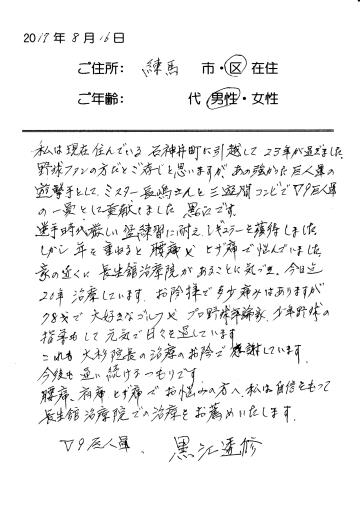 2017年8月16日
ご住所: 練馬 市・区 在住
ご年齢: 代 男性・女性
私は現在住んでいる石神井町に引越して23年が過ぎました。
野球ファンの方だとご存じと思いますが、あの強かった巨人軍の
遊撃手として、ミスター長嶋さんと三遊間コンビでV9巨人軍
の一員として貢献しました黒江です。
選手時代厳しい猛練習に耐え、レギュラーを獲得しました
しかし年を重ねると腰痛やヒザ痛で悩んでいました。
家の近くに長生館治療院があることに気づき、今日迄
20年治療しています。お陰様で多少痛みはありますが
78才で大好きなゴルフやプロ野球評論家、少年野球の
指導もして元気で日々を過しています。
これも大杉院長の治療のお陰で感謝しています。
今後も通い続けるつもりです。
腰痛、肩痛、ヒザ痛でお悩みの方へ、私は自信をもって
長生館治療院での治療をお薦めいたします。
V9巨人軍、黒江透修